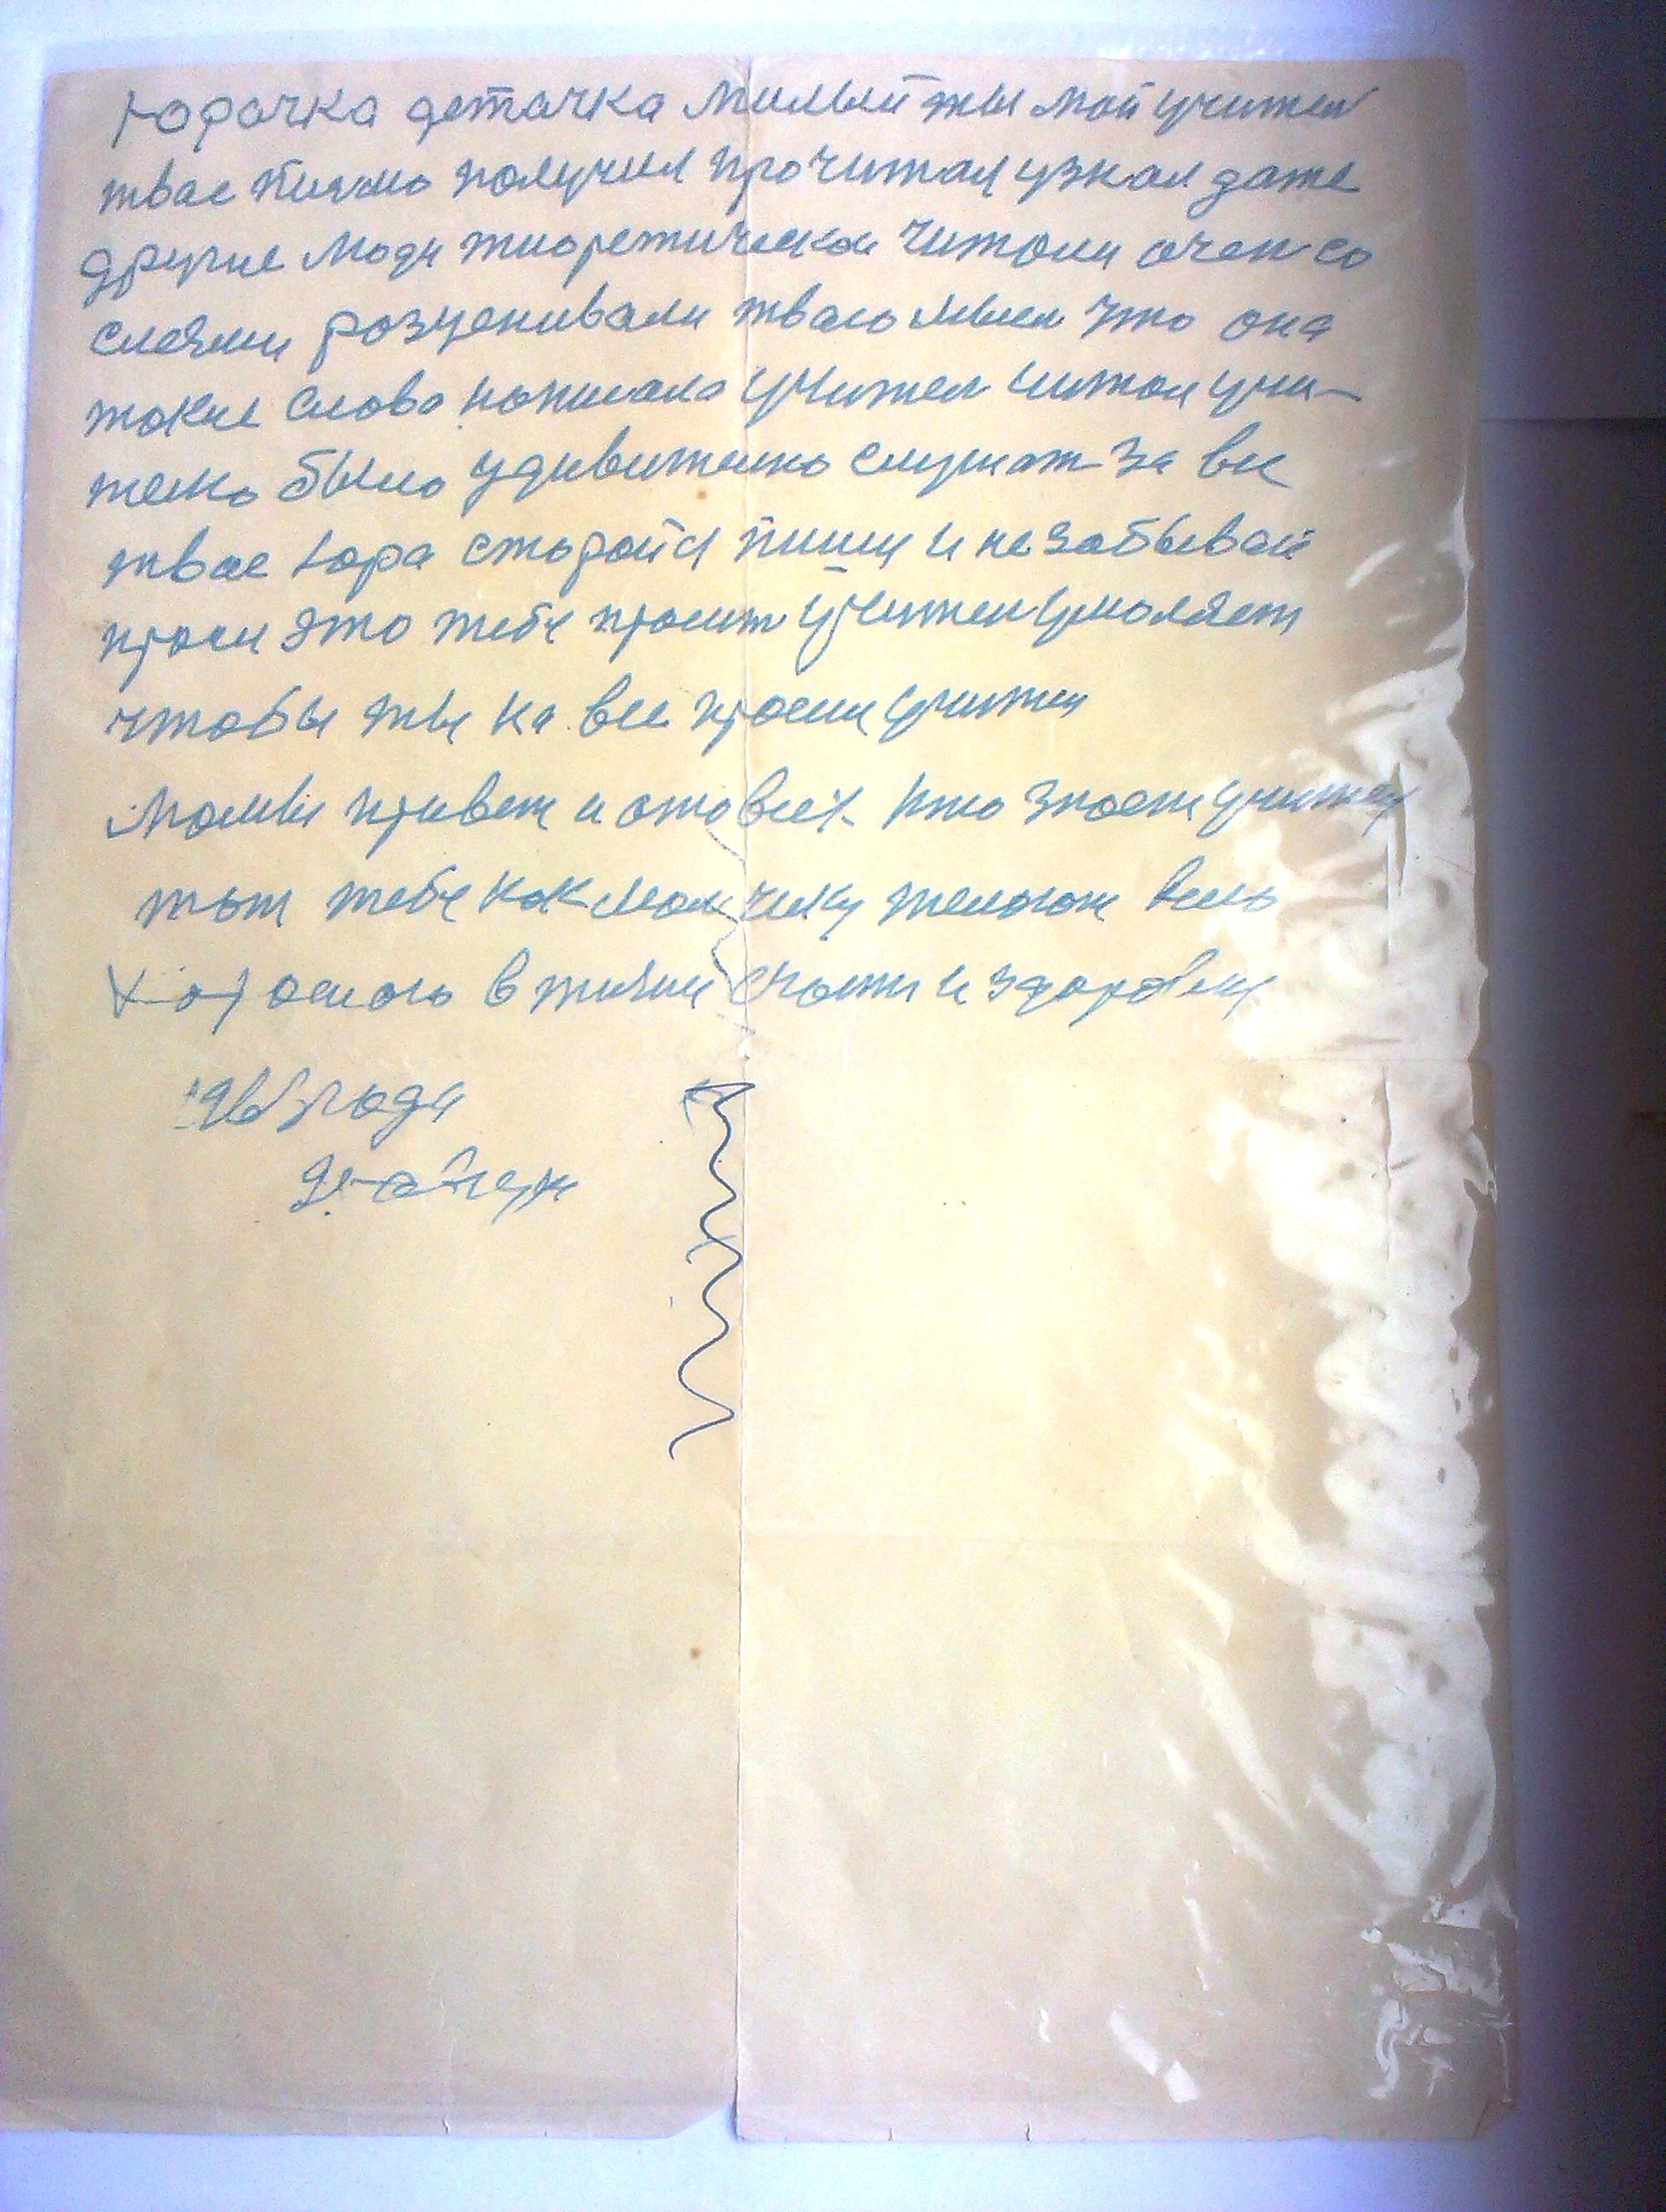 Юрачка деточка милый ты мой учител
твое писмо получил прочитал узнал даже
другие люди тиоретически читали очен со
слезами розценивали тваю мысл что она
такие слова написала учител читал учи-
телю было удивително слушат за все
твое Юра старайся пиши и не забывай
проси это тебе просит учител умоляет
чтобы ты на все проси учител
мамы привет и ото всех кто знает учител
тот тебе как малчику желают всево
хорошого в жизни счасти и здоровию
года